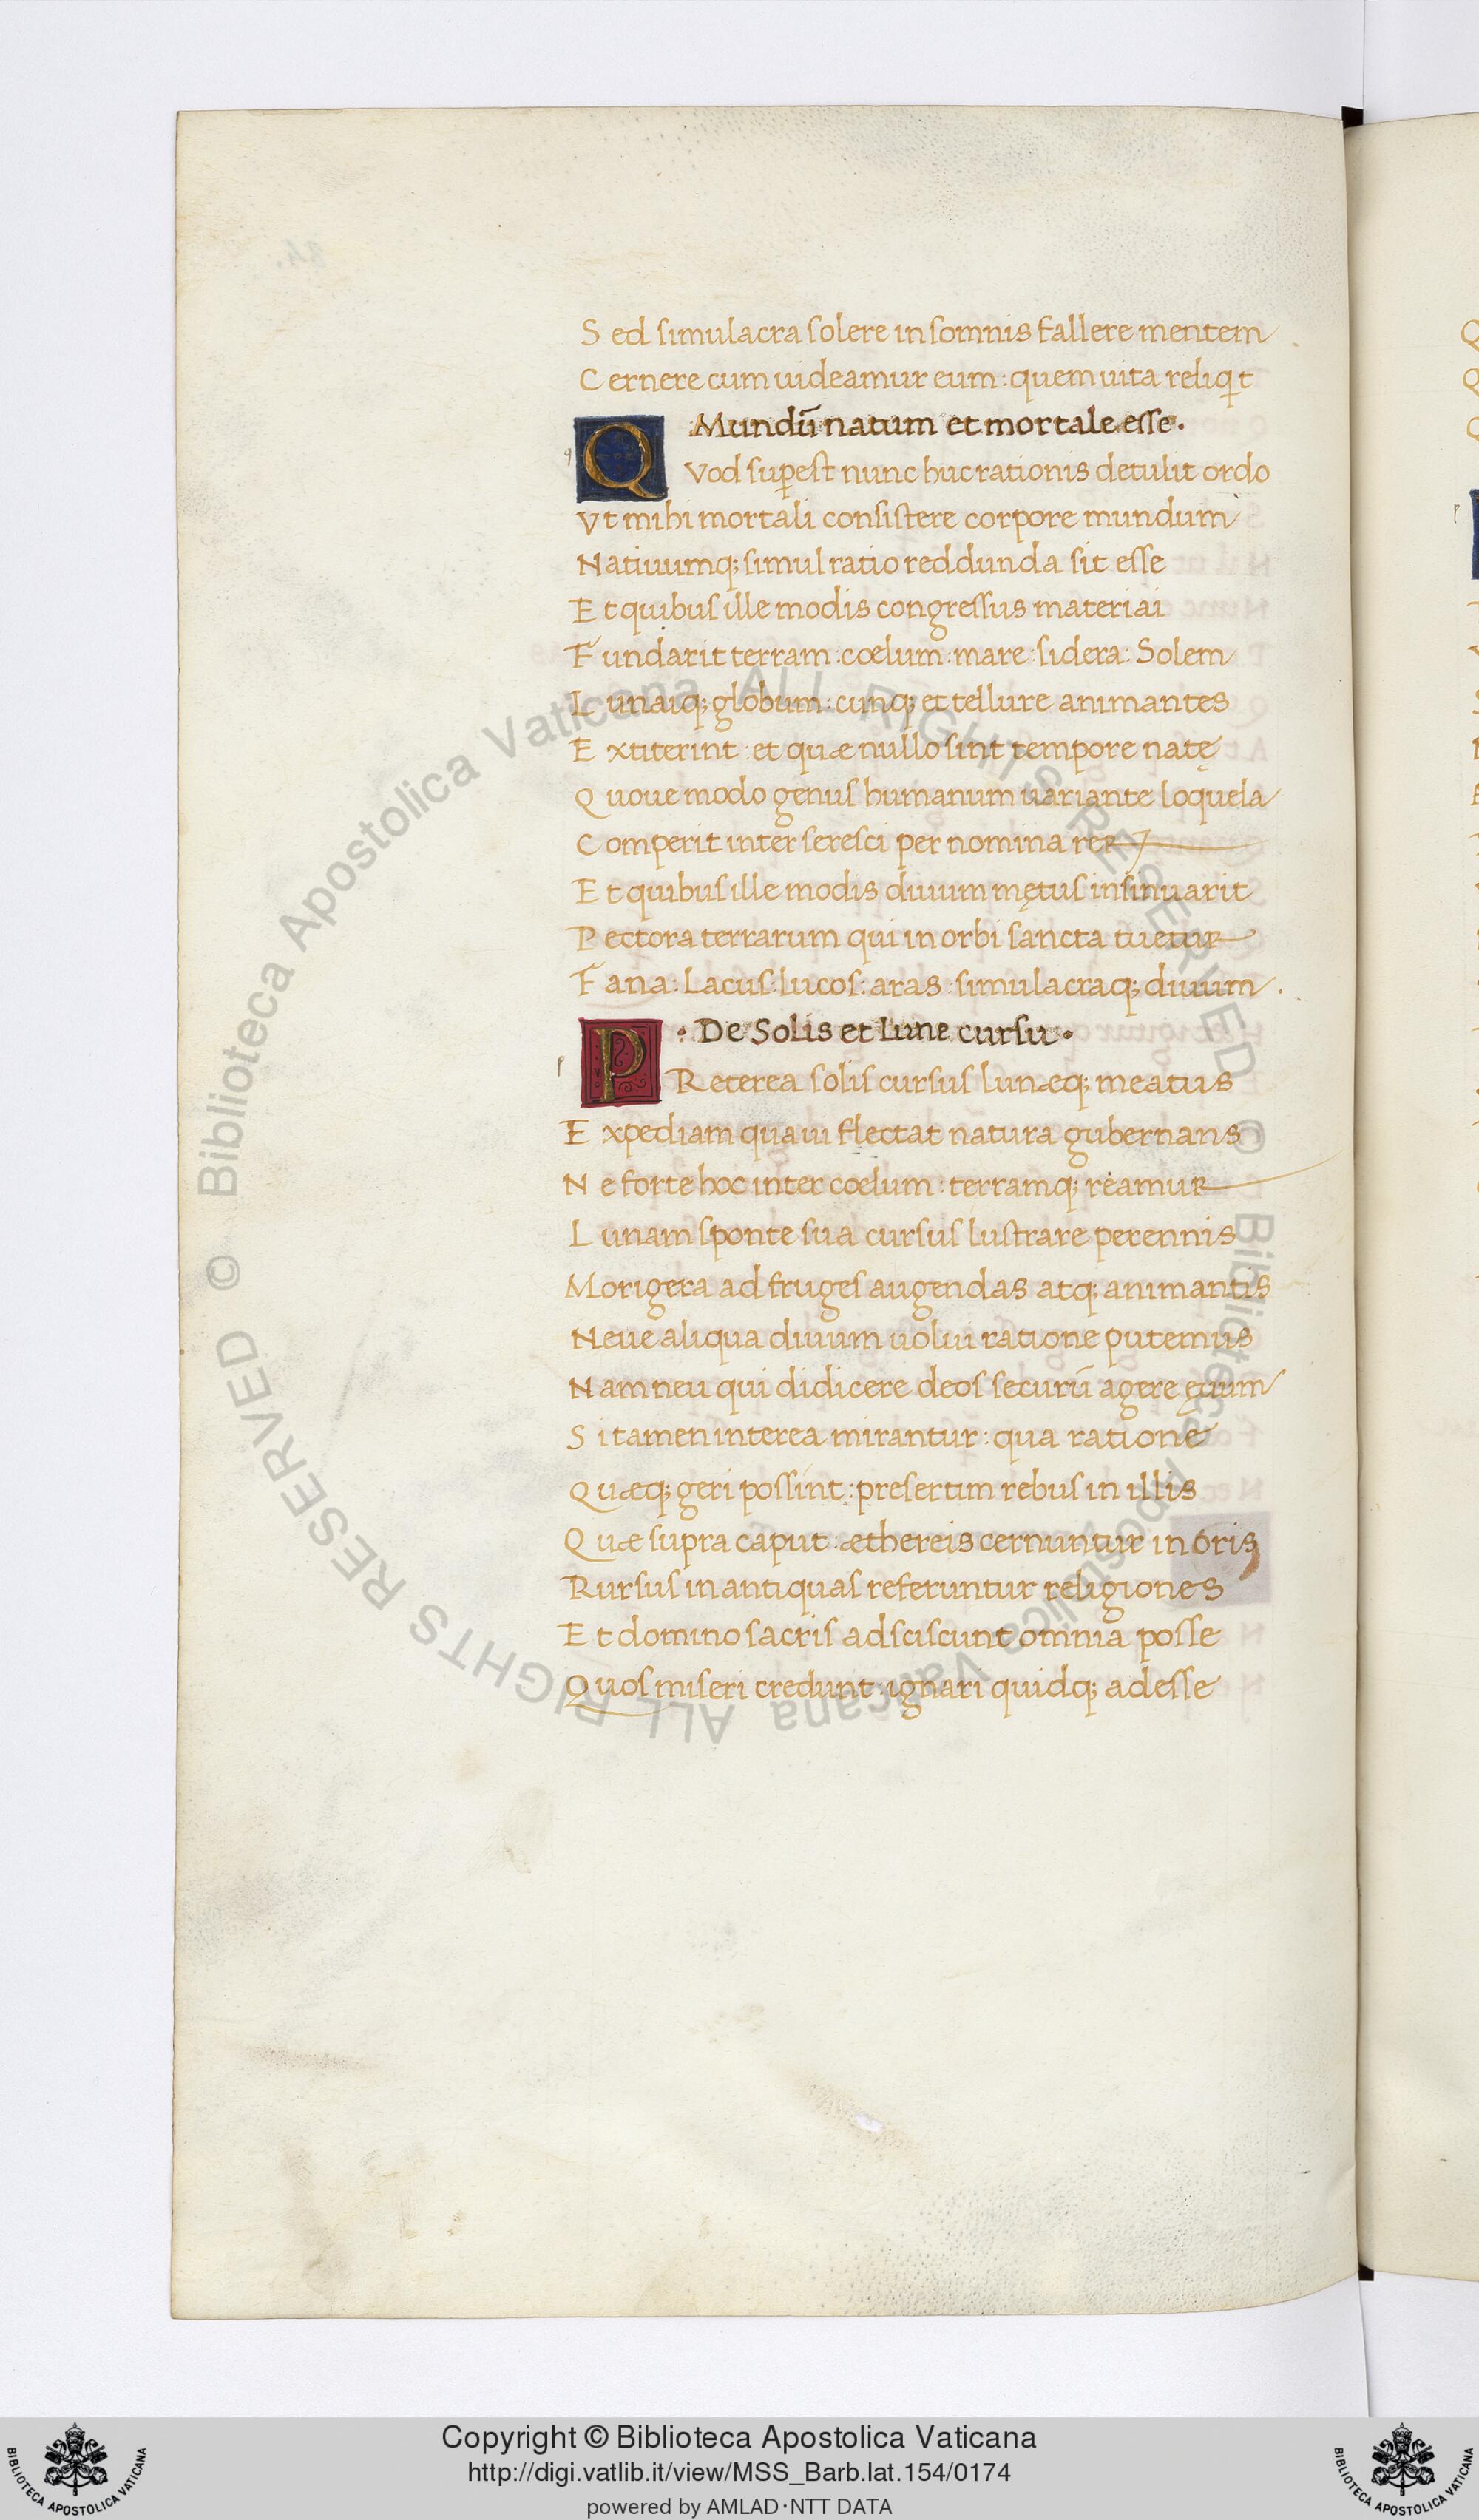 Sed simulacra solere in somnis fallere mentem
Cernere cum uideamur eum: quem uita reliq̇t
Mundū natum et mortale esse.
QVod suꝑest nunc huc rationis detulit ordo
Vt mihi mortali consistere corpore mundum
Natiuumq; simul ratio reddunda sit esse
Et quibus ille modis congressus materiai
Fundarit terram: coelum: mare: sidera: Solem
Lunaiq; globum: cunq; et tellure animantes
Extiterint: et quæ nullo sint tempore natę
Quoue modo genus humanum uariante loquela
Comperit inter seresci per nomina reꝝ
Et quibus ille modis diuum mętus insinuarit
Pectora terrarum qui in orbi sancta tuetur
Fana: Lacus: lucos: aras: simulacraq; diuum.
· De Solis et Lune cursu ·
PReterea solis cursus lunæq; meatus
Expediam qua ui flectat natura gubernans
Ne forte hoc inter coelum: terramq; reamur
Lunam sponte sua cursus lustrare perennis
Morigera ad fruges augendas atq; animantis
Neue aliqua diuum uolui ratione putemus
Nam neu qui didicere deos securū agere ęuum
Si tamen interea mirantur: qua ratione
Quæq; geri possint: presertim rebus in illis
Quæ supra caput: æthereis cernuntur in oris
Rursus in antiquas referuntur religiones
Et domino sacris adsciscunt omnia posse
Quos miseri credunt: ignari quidq; adesse
© Biblioteca Apostolica Vaticana ALL RIGHTS RESERVED © Biblioteca Apostolica Vaticana ALL RIGHTS RESERVED
Copyright © Biblioteca Apostolica Vaticana
http://digi.vatlib.it/view/MSS_Barb.lat.154/0174
powered by AMLAD·NTT DATA
BIBLIOTECA APOSTOLICA VATICANA
BIBLIOTECA APOSTOLICA VATICANA